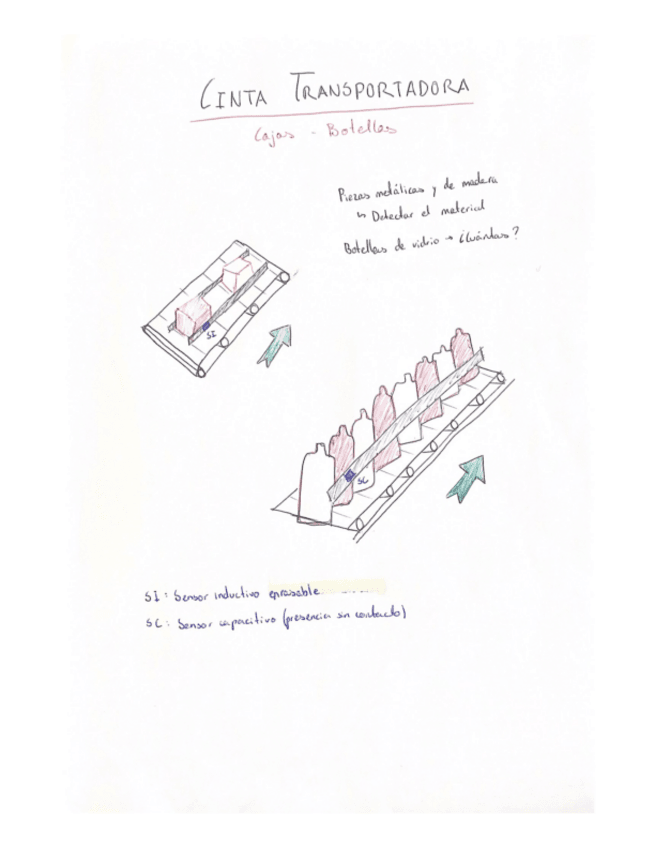 CINTA TRANSPORTADORA
Cajas - Botellas
Piezas metálicas y de madera
↳ Detectar el material
Botellas de vidrio → ¿Cuántas?
SI
SC
SI: Sensor inductivo enrasable
SC: Sensor capacitivo (presencia sin contacto)